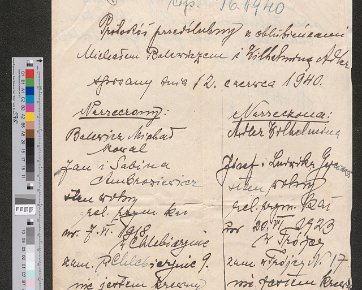 16.6.1940
Protokół przedślubny z oblubieńcami
Michałem Balewiczem i Wilhelminą Adler
spisany dnia 12. czerwca 1940.
Narzeczony:
Balewicz Michał
kowal
Jan i Sabina
Ambroziewicz
stan wolny
rel. rzym. kat
ur. 7. VI. 1918
w Chlebicznie
zam. Chlebicznie 9.
nie jestem krewny
Narzeczona:
Adler Wilhelmina
Józef i Ludwika
stan wolny
rel. rzym. kat
ur. 20. VI. 1923
w Trójcy
zam. w Trójcy N. 17
nie jestem